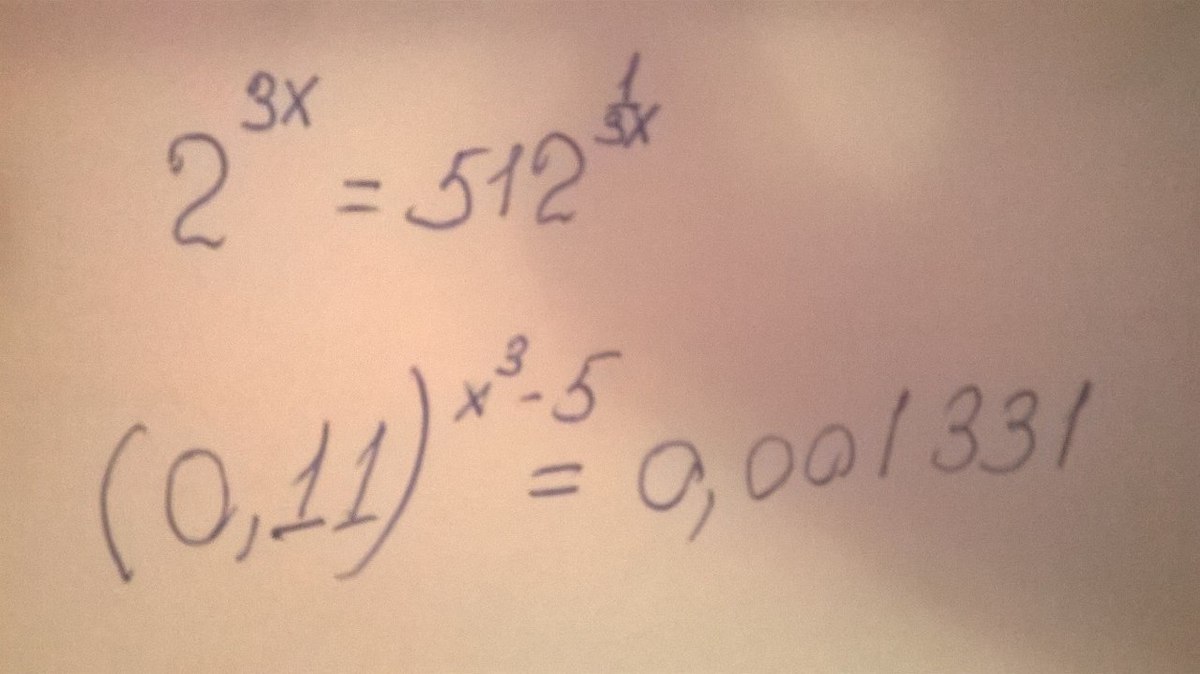 2^{3x} = 512^{\frac{1}{3x}}
(0,11)^{x^3-5} = 0,001331